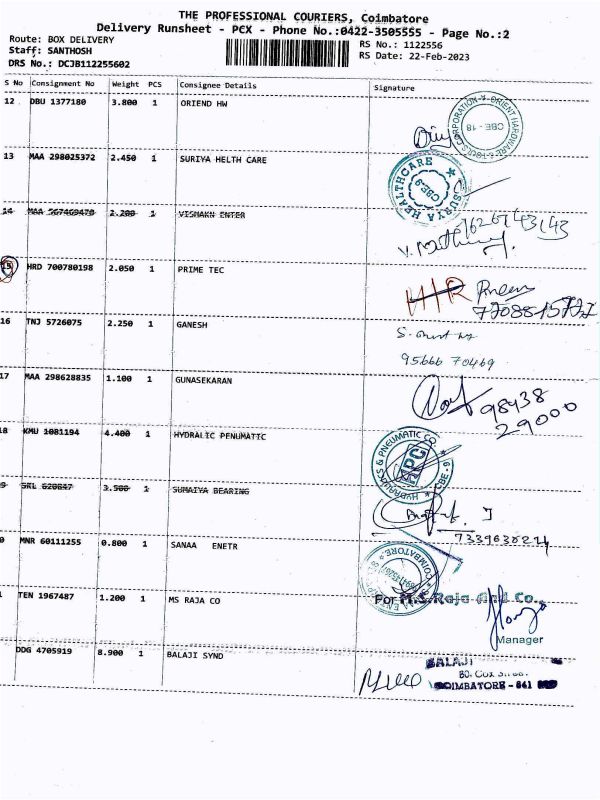 THE PROFESSIONAL COURIERS, Coimbatore
Delivery Runsheet - PCX - Phone No.:0422-3505555 - Page No.:2
Route: BOX DELIVERY
RS No.: 1122556
Staff: SANTHOSH
RS Date: 22-Feb-2023
DRS No.: DCJB112255602
S No Consignment No Weight PCS Consignee Details Signature
12 DBU 1377180 3.800 1 ORIEND HW
ORIENT HARDWARE & TOOLS CORPORATION
CBE - 18
13 MAA 298025372 2.450 1 SURIYA HELTH CARE
SURYA HEALTHCARE
CBE-9
14 MAA 567469470 2.200 1 VISHAKN ENTER
15 HRD 700780198 2.050 1 PRIME TEC
H/R
16 TNJ 5726075 2.250 1 GANESH
95666 70469
17 MAA 298628835 1.100 1 GUNASEKARAN
98438
29000
8 KMU 1081194 4.400 1 HYDRALIC PENUMATIC
HYDRAULICS & PNEUMATIC CO
HPC
CBE - 9
9 SRL 620847 3.500 1 SUMAIYA BEARING
0 MNR 60111255 0.800 1 SANAA ENETR
COIMBATORE
TEN 1967487 1.200 1 MS RAJA CO
For M.S. Raja And Co.,
Manager
DDG 4705919 8.900 1 BALAJI SYND
BALAJI
80, Cox
COIMBATORE - 641